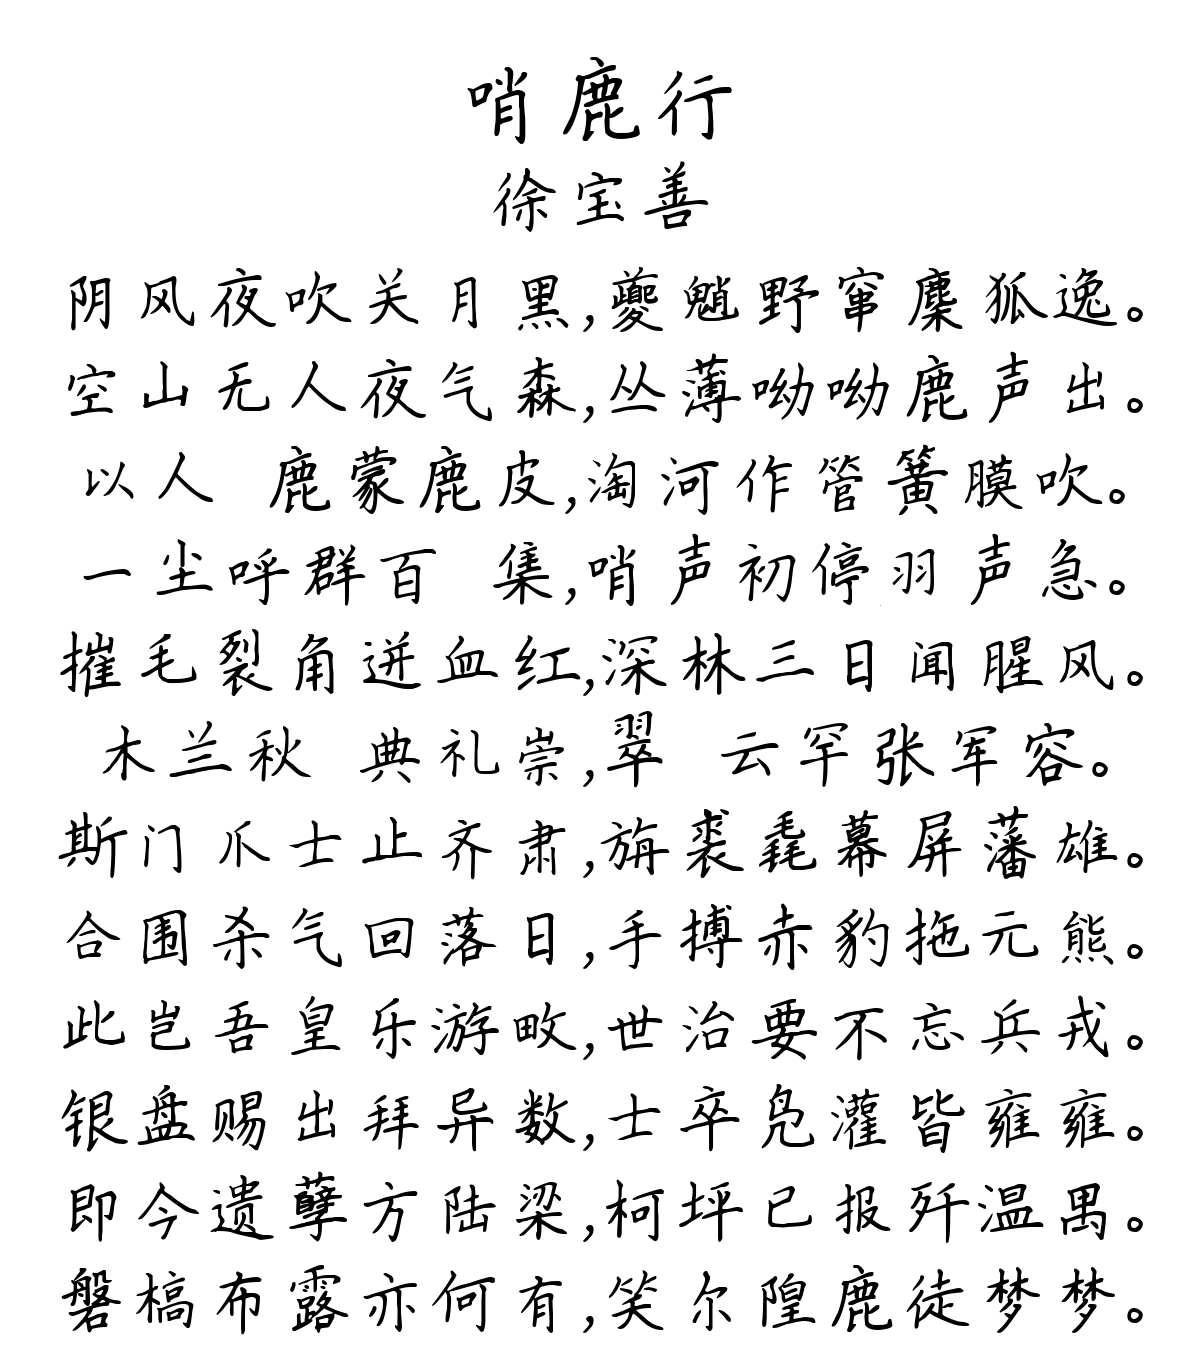 哨鹿行
徐宝善
阴风夜吹关月黑,夔魈野窜麇狐逸。
空山无人夜气森,丛薄呦呦鹿声出。
以人 鹿蒙鹿皮,淘河作管簧膜吹。
一尘呼群百 集,哨声初停羽声急。
摧毛裂角迸血红,深林三日闻腥风。
木兰秋 典礼崇,翠 云罕张军容。
斯门爪士止齐肃,旃裘毳幕屏藩雄。
合围杀气回落日,手搏赤豹拖元熊。
此岂吾皇乐游畋,世治要不忘兵戎。
银盘赐出拜异数,士卒凫灌皆雍雍。
即今遗孽方陆梁,柯坪已报歼温禺。
磐槁布露亦何有,笑尔隍鹿徒梦梦。